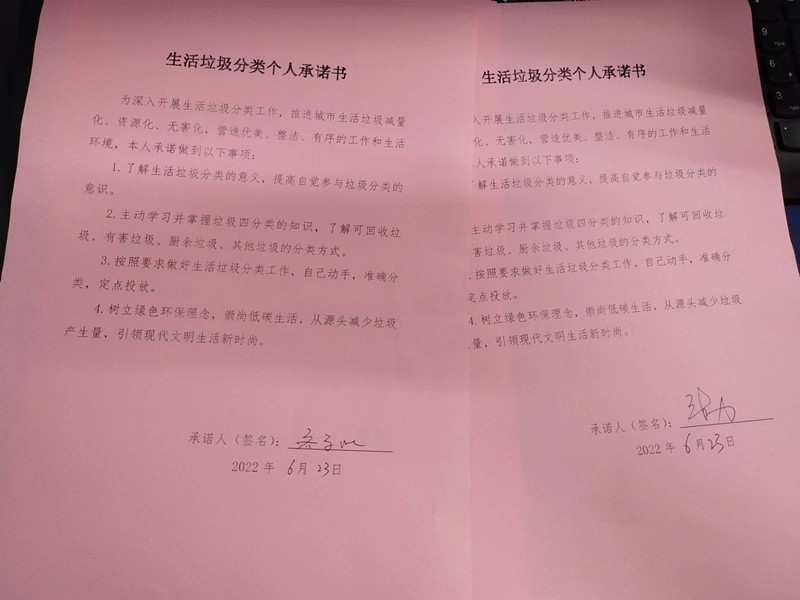 生活垃圾分类个人承诺书
为深入开展生活垃圾分类工作，推进城市生活垃圾减量
化、资源化、无害化，营造优美、整洁、有序的工作和生活
环境，本人承诺做到以下事项：
1.了解生活垃圾分类的意义，提高自觉参与垃圾分类的
意识。
2.主动学习并掌握垃圾四分类的知识，了解可回收垃
圾、有害垃圾、厨余垃圾、其他垃圾的分类方式。
3.按照要求做好生活垃圾分类工作，自己动手，准确分
类，定点投放。
4.树立绿色环保理念，崇尚低碳生活，从源头减少垃圾
产生量，引领现代文明生活新时尚。
承诺人（签名）：
2022 年 6月 23日
生活垃圾分类个人承诺书
入开展生活垃圾分类工作，推进城市生活垃圾减量
化、资源化、无害化，营造优美、整洁、有序的工作和生活
人承诺做到以下事项：
了解生活垃圾分类的意义，提高自觉参与垃圾分类的
主动学习并掌握垃圾四分类的知识，了解可回收垃
害垃圾、厨余垃圾、其他垃圾的分类方式。
.按照要求做好生活垃圾分类工作，自己动手，准确分
定点投放。
4.树立绿色环保理念，崇尚低碳生活，从源头减少垃圾
量，引领现代文明生活新时尚。
承诺人（签名）：
2022 年 6月23日